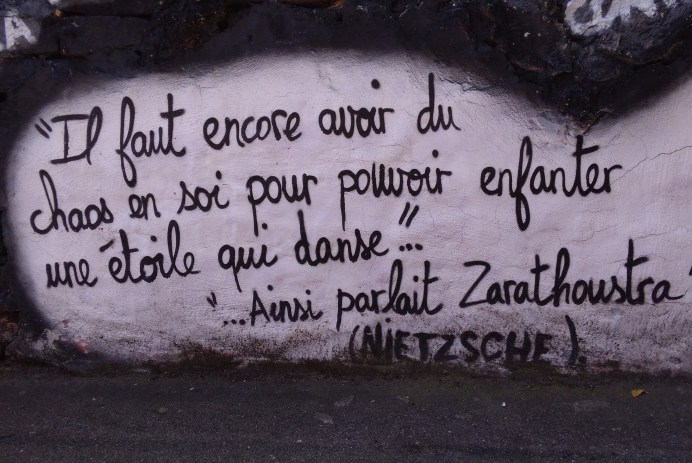 "Il faut encore avoir du
chaos en soi pour pouvoir enfanter
une étoile qui danse"...
"...Ainsi parlait Zarathoustra"
(NiETZSCHE).